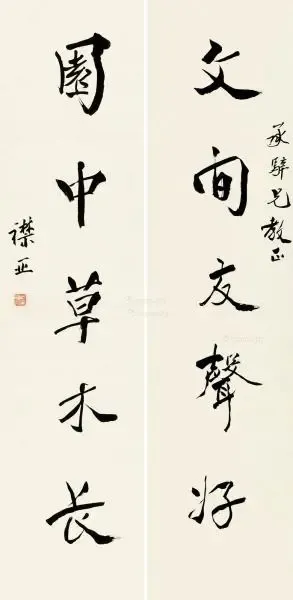 文間友聲好
承兄教正
園中草木長
襟亞